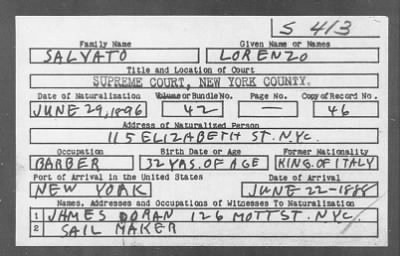 S 413
Family Name Given Name or Names
SALVATO LORENZO
Title and Location of Court
SUPREME COURT, NEW YORK COUNTY.
Date of Naturalization Volume or Bundle No. Page No. Copy of Record No.
JUNE 29, 1896 42 — 46
Address of Naturalized Person
115 ELIZABETH ST. N.Y.C.
Occupation Birth Date or Age Former Nationality
BARBER 32 YRS. OF AGE KING. OF ITALY
Port of Arrival in the United States Date of Arrival
NEW YORK JUNE 22-1888
Names, Addresses and Occupations of Witnesses To Naturalization
1 JAMES DORAN 126 MOTT ST. N.Y.C.
2 SAIL MAKER